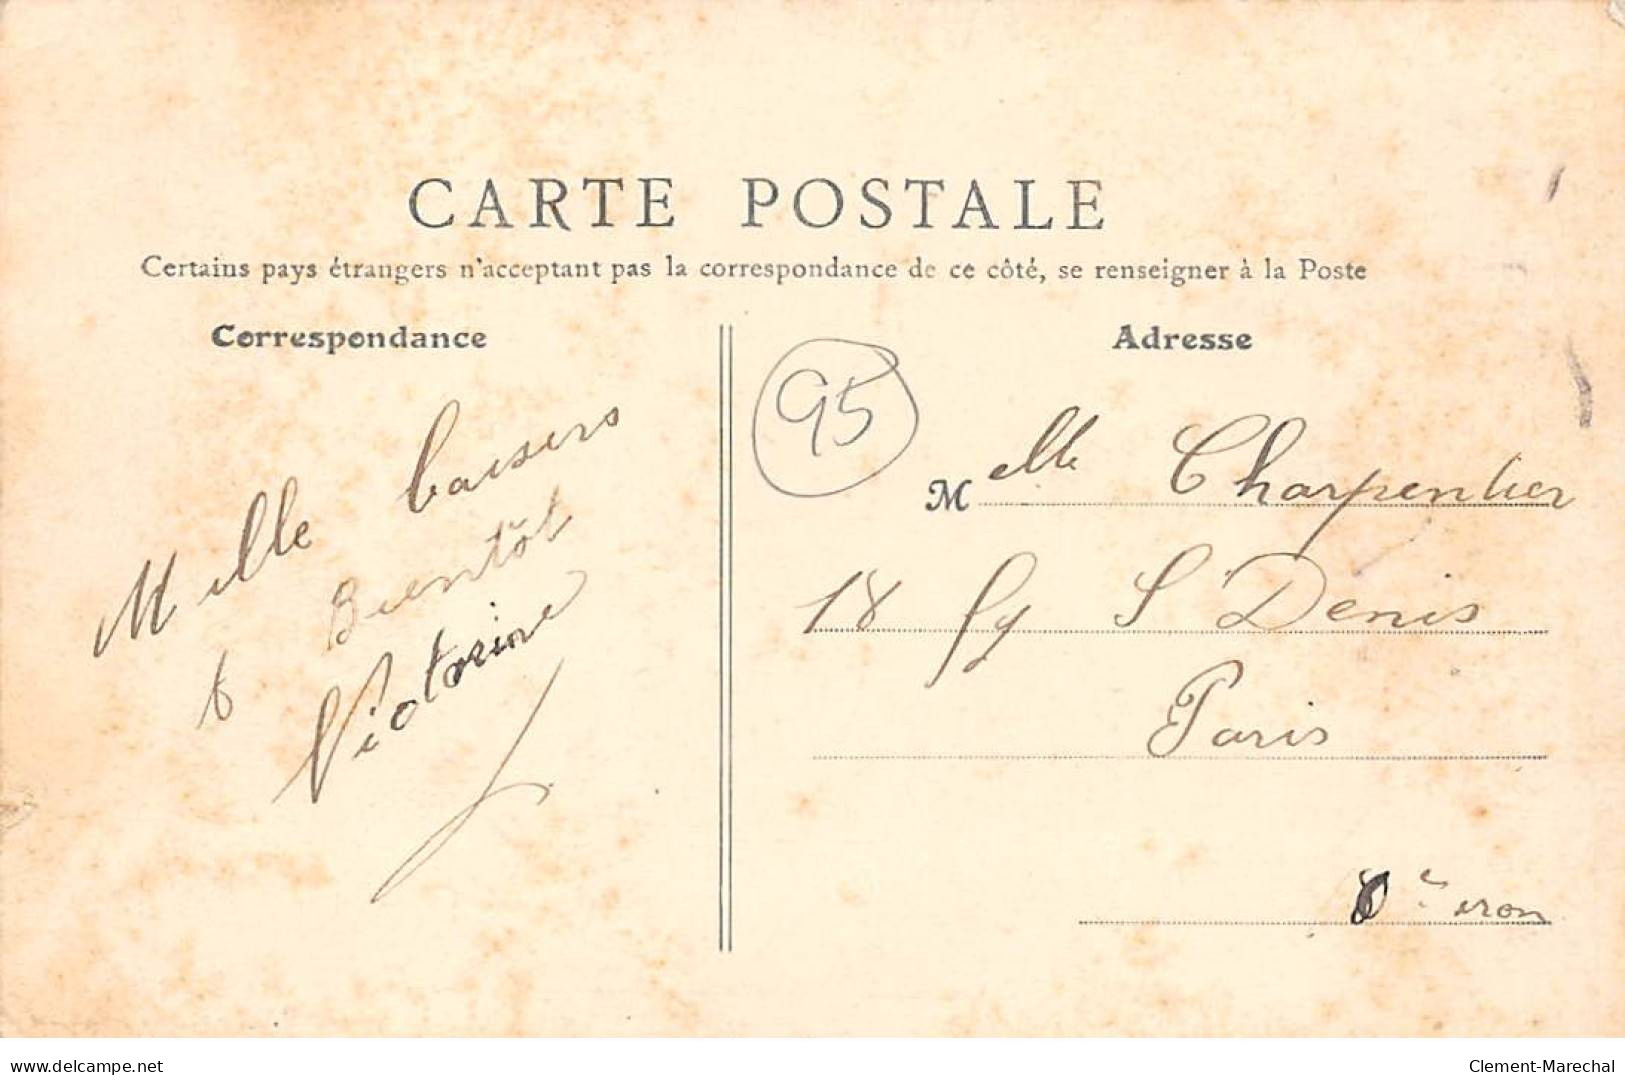 CARTE POSTALE
Certains pays étrangers n'acceptant pas la correspondance de ce côté, se renseigner à la Poste
Correspondance
Mille baisers
Bientôt
Victorine
95
Adresse
Melle Charpentier
18 fg S Denis
Paris
www.delcampe.net
Clement-Marechal